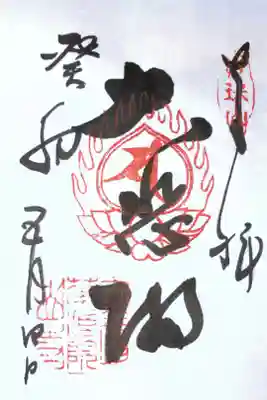 奉拝
大悲閣
癸卯
五月四日